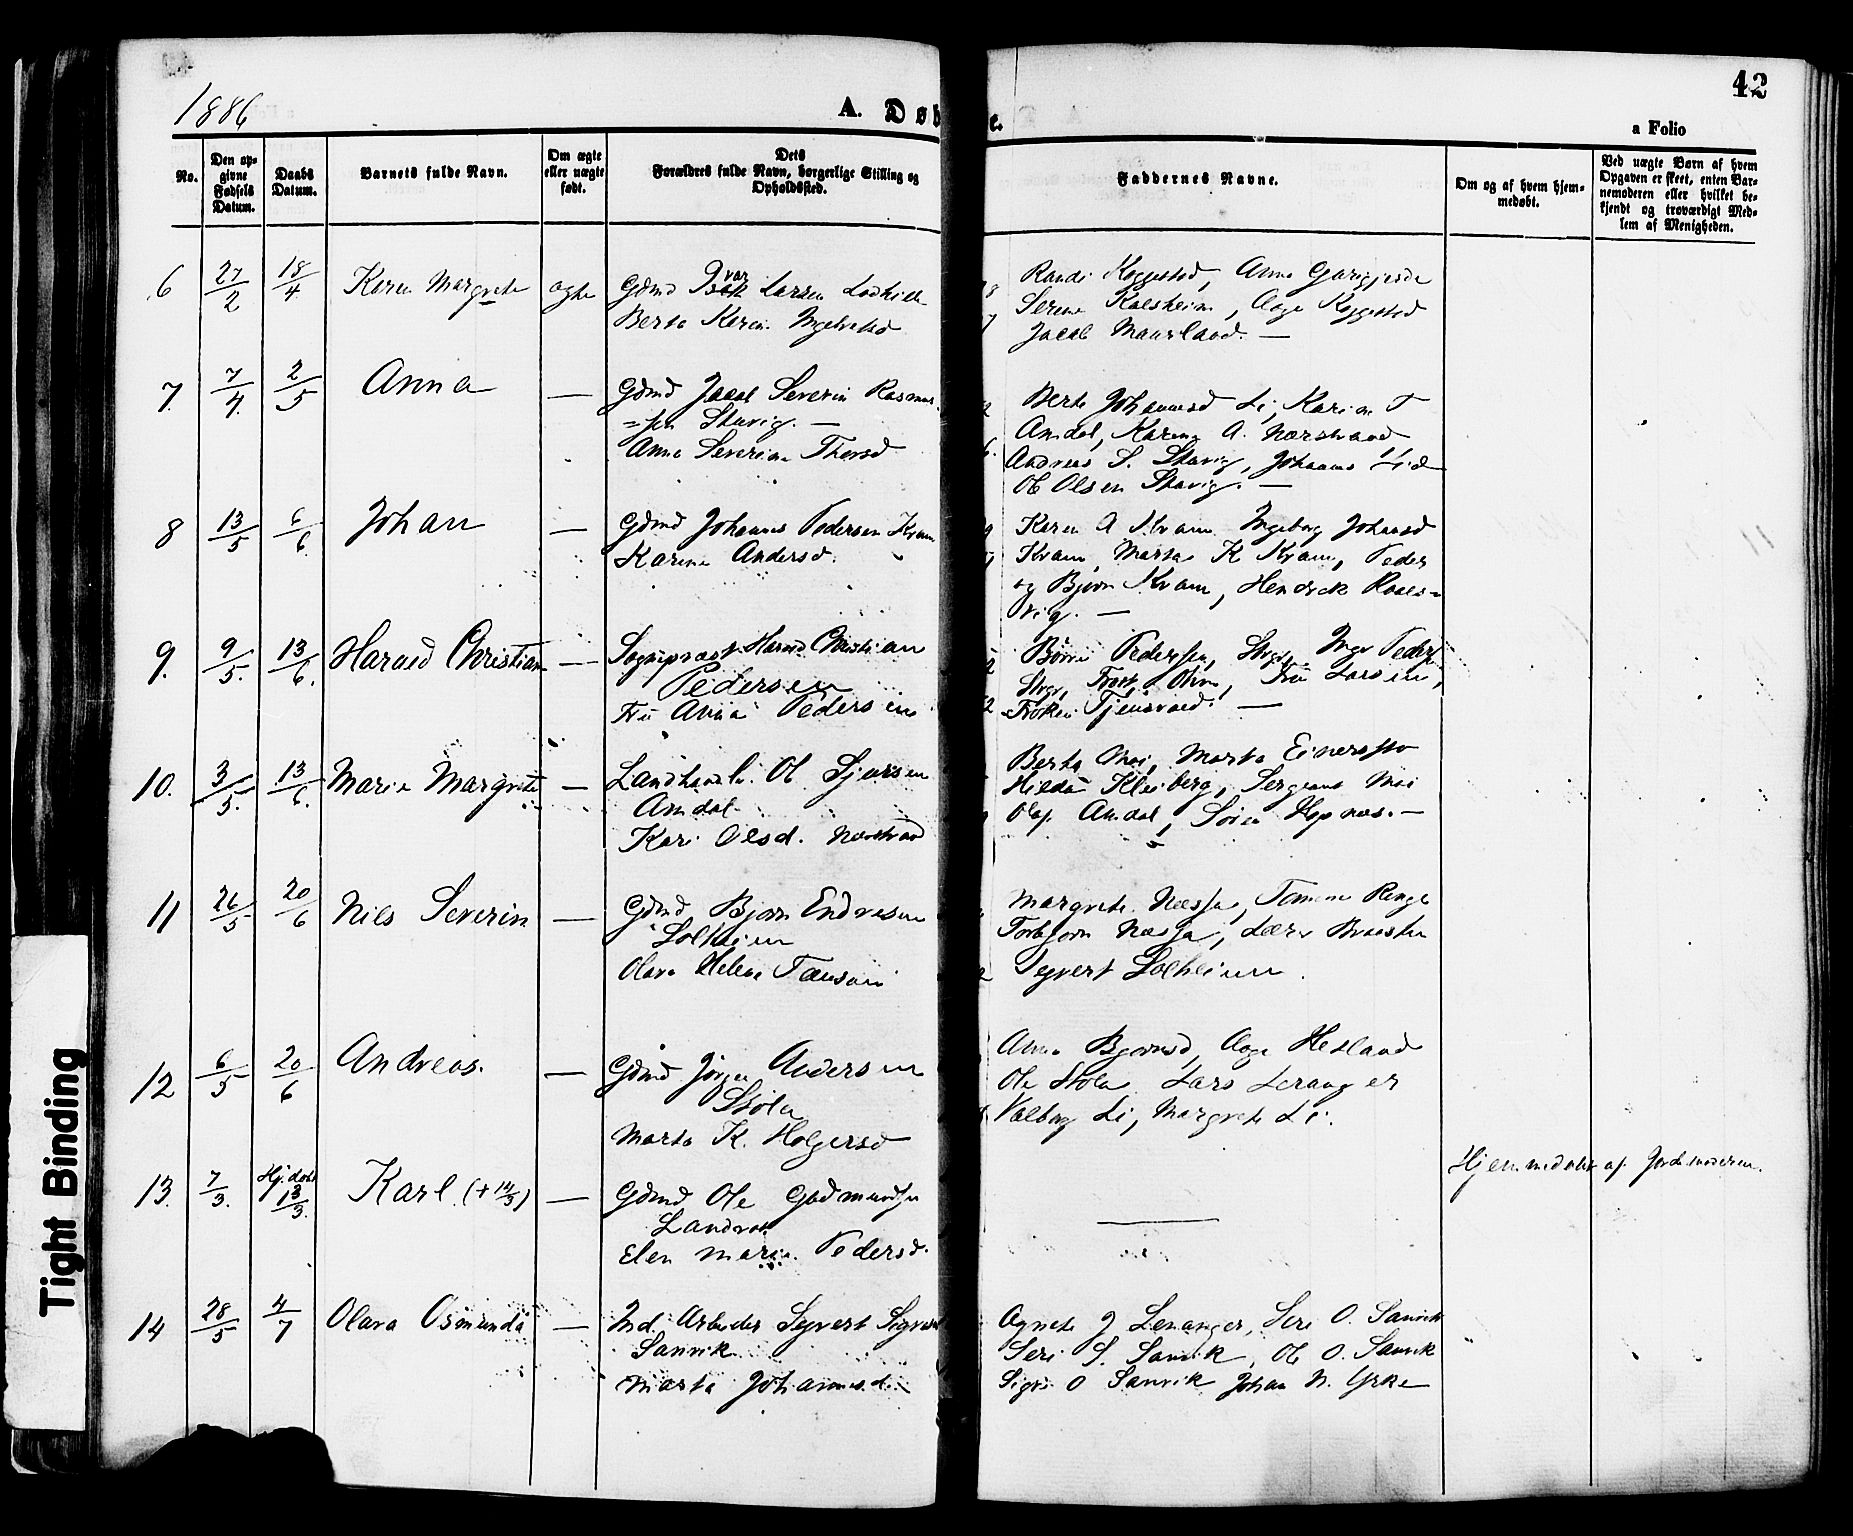 1886
A. Døb
e.
42
a Folio
No.
Den op-
givne
Fødsels
Datum.
Daabs
Datum.
Barnets fulde Navn.
Om ægte
eller uægte
født.
Dets
Forældres fulde Navn, borgerlige Stilling og
Opholdssted.
Faddernes Navne.
Om og af hvem hjem-
medøbt.
Ved uægte Børn af hvem
Opgaven er skeet, enten Bar-
nemoderen eller hvilket be-
kjendt og troværdigt Med-
lem af Menigheden.
6 27/2 18/4 Karen Margrete ægte Gdmd Ivar Larsen
Berta Karin
Randi Koggestad, Anna
Serene Kalsheim, Aage Koggestad
Jacob Maurland. —
7. 7/4. 2/5 Anna — Gdmd Jacob Severin Rasmus-
=sen Starvig. —
Anna Severine Thorsd
Berte Johannesd Li, Karine T
Amdal, Karine A. Nærstrand
Andreas S. Starvig, Johannes Lid
Ol Olsen Starvig. —
8 13/5 6/6. Johan — Gdmd Johannes Pedersen Kvam
Karine Andersd.
Karen A Kvam Ingeborg Johansd
Kvam, Marta K Kvam, Peder
og Bjørn Kvam, Hendrik
vig. —
9. 9/5. 13/6. Harald Christian — Sogneprest Harald Christian
Pedersen
Fru Anna Pedersen
Børre Pedersen, Inger Peders
Fru Larsen,
Frøken Tjensvold. —
10. 3/5. 13/6. Marie Margrete — Landhandl. Ol Sjursen
Amdal
Kari Olsd. Nærstrand
Berta Moi, Marta Einersen
Hilda Kleiberg, Sergeant Moi
Olaf Amdal, Søren Hopnes. —
11 26/5 20/6 Nils Severin — Gdmd Bjørn Endresen
Solheim
Olava Helene
Margrete Næssa, Tomine Renge
Torbjørn Næssa, Lærer
Syvert Solheim.
12 6/5 20/6 Andreas. — Gdmd Jørgen Andersen
Støle
Marta K. Holgersd
Anna Bjørnsd, Aage Hetland
Ole Støle Lars Leranger
Valborg Li, Margrete Li.
13. 7/3. Hj.døbt 13/3. Karl. (+14/3) — Gdmd Ole Gudmundsen
Landvik
Elen Marie. Pedersd.
Hjemmedøbt af Jordemoderen.
14 28/5 4/7 Olava Osmunda — Ind. Arbeider Syvert Sigvard
Sanvik
Marta Johannesd.
Agnete J Leranger, Seri O. Sanvik
Seri S. Sanvik, Ol O. Sanvik
Sigri O Sanvik Johan N. Yrke
Tight Binding